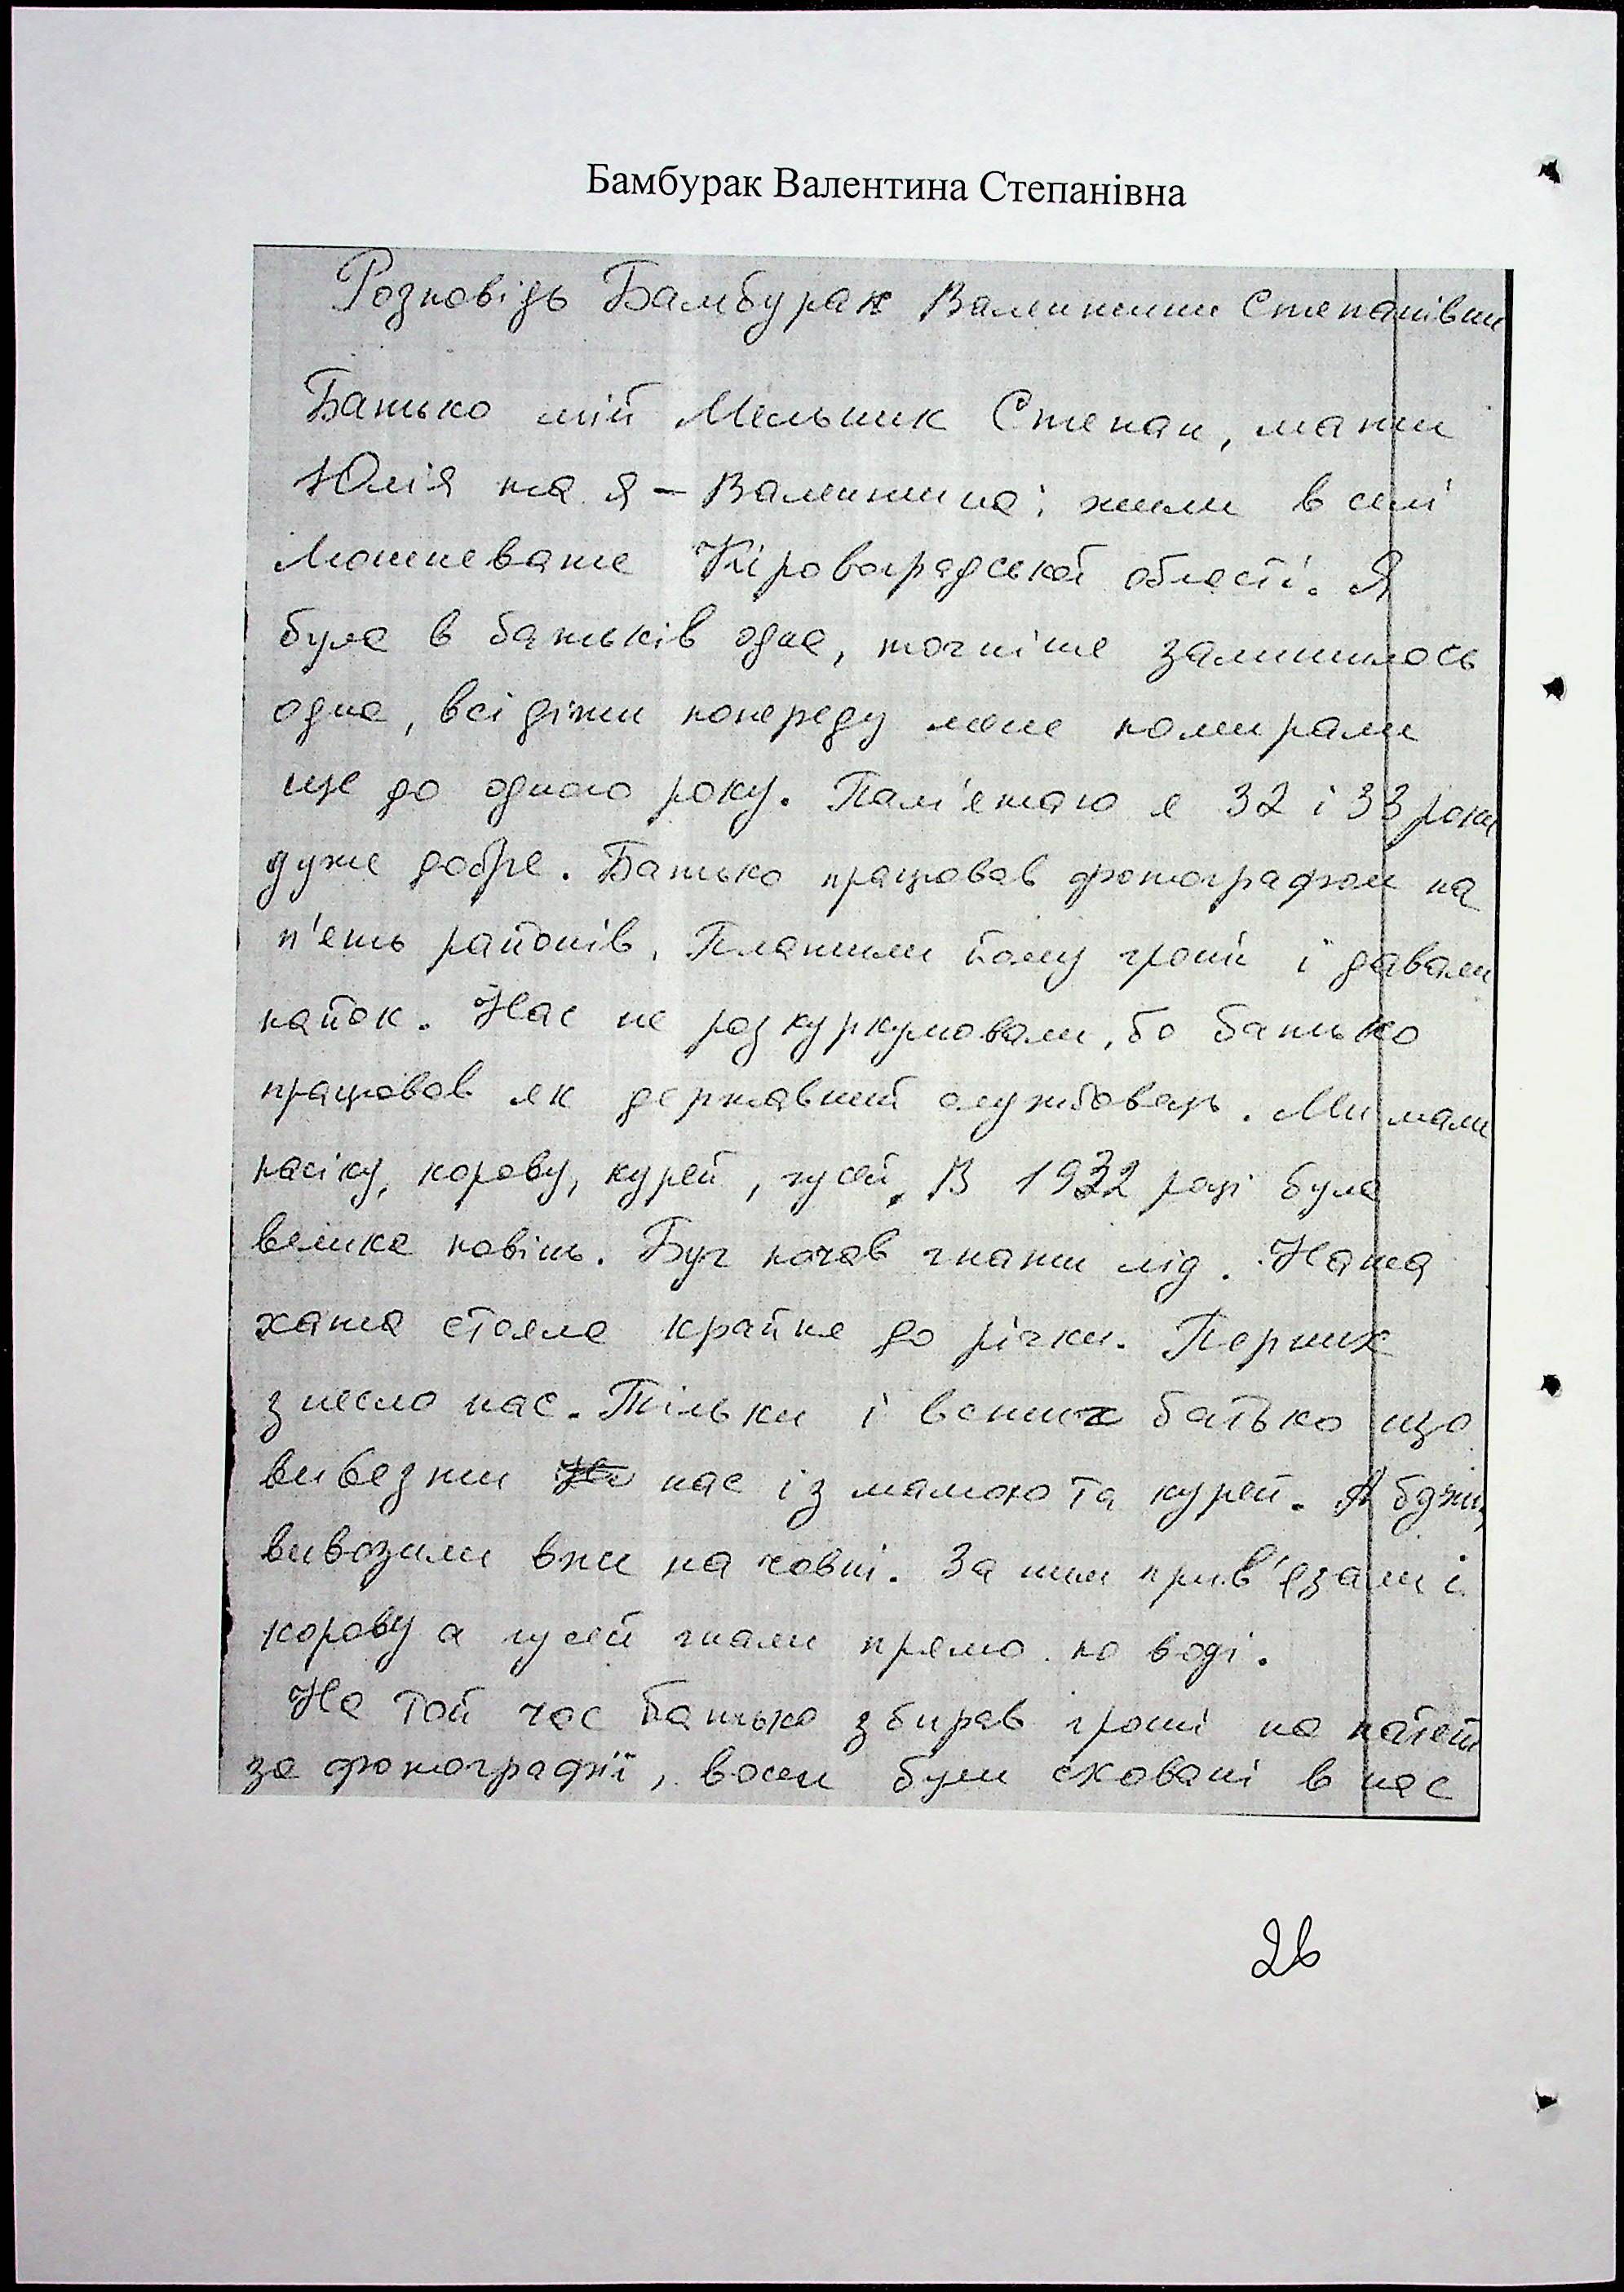 Бамбурак Валентина Степанівна
Розповідь Бамбурак Валентини Степанівни
Батько мій Мельник Степан, мати
Юлія та я – Валентина; жили в селі
Мошневате Кіровоградської області. Я
була в батьків одна, точніше залишилось
одна, всі діти попереду мене помирали
ще до одного року. Пам'ятаю я 32 і 33 роки
дуже добре. Батько працював фотографом на
п'ять районів. Платили йому гроші і давали
пайок. Нас не розкуркулювали, бо батько
працював як державний службовець. Ми мали
пасіку, корову, курей, гусей. В 1932 році була
велика повінь. Буг почав гнати лід. Наша
хата стояла крайня до річки. Перших
знесло нас. Тільки і встиг батько що
вивезти нас із мамою та курей. А бджіл
вивозили вже на човні. За ним прив'язали і
корову а гусей гнали прямо по воді.
На той час батько збирав гроші на патент
за фотографії, вони були сховані в нас
26